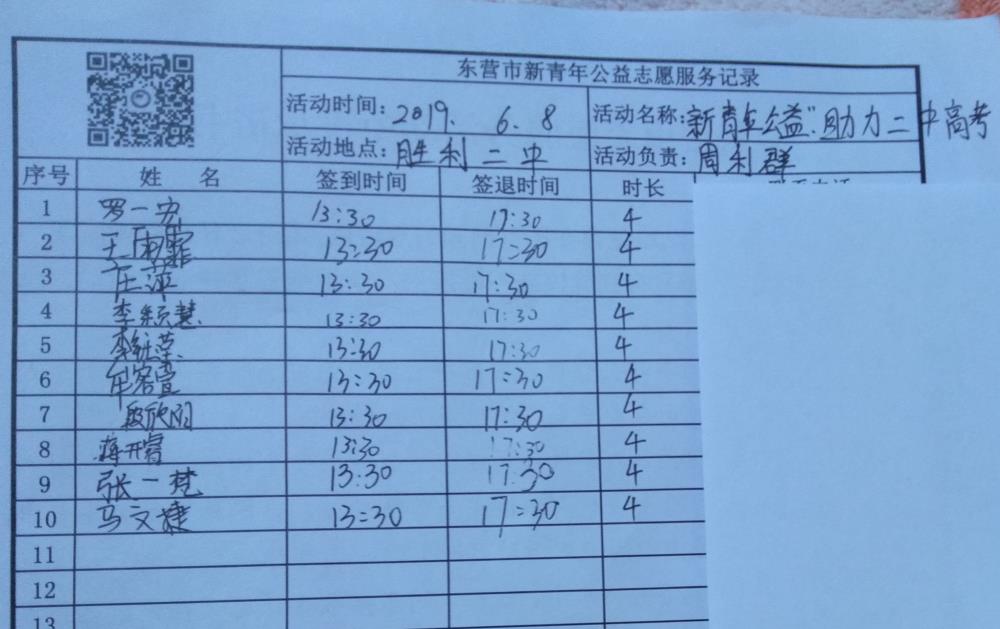 东营市新青年公益志愿服务记录
活动时间: 2019. 6. 8 活动名称: 新青年公益"助力二中高考
活动地点: 胜利二中 活动负责: 周利群
序号 姓名 签到时间 签退时间 时长
1 罗一 13:30 17:30 4
2 王雨霏 13:30 17:30 4
3 庄萍 13:30 17:30 4
4 李颖慧 13:30 17:30 4
5 李 13:30 17:30 4
6 牟容萱 13:30 17:30 4
7 段欣雨 13:30 17:30 4
8 蒋开睿 13:30 17:30 4
9 张一梵 13:30 17:30 4
10 马文婕 13:30 17:30 4
11
12
13